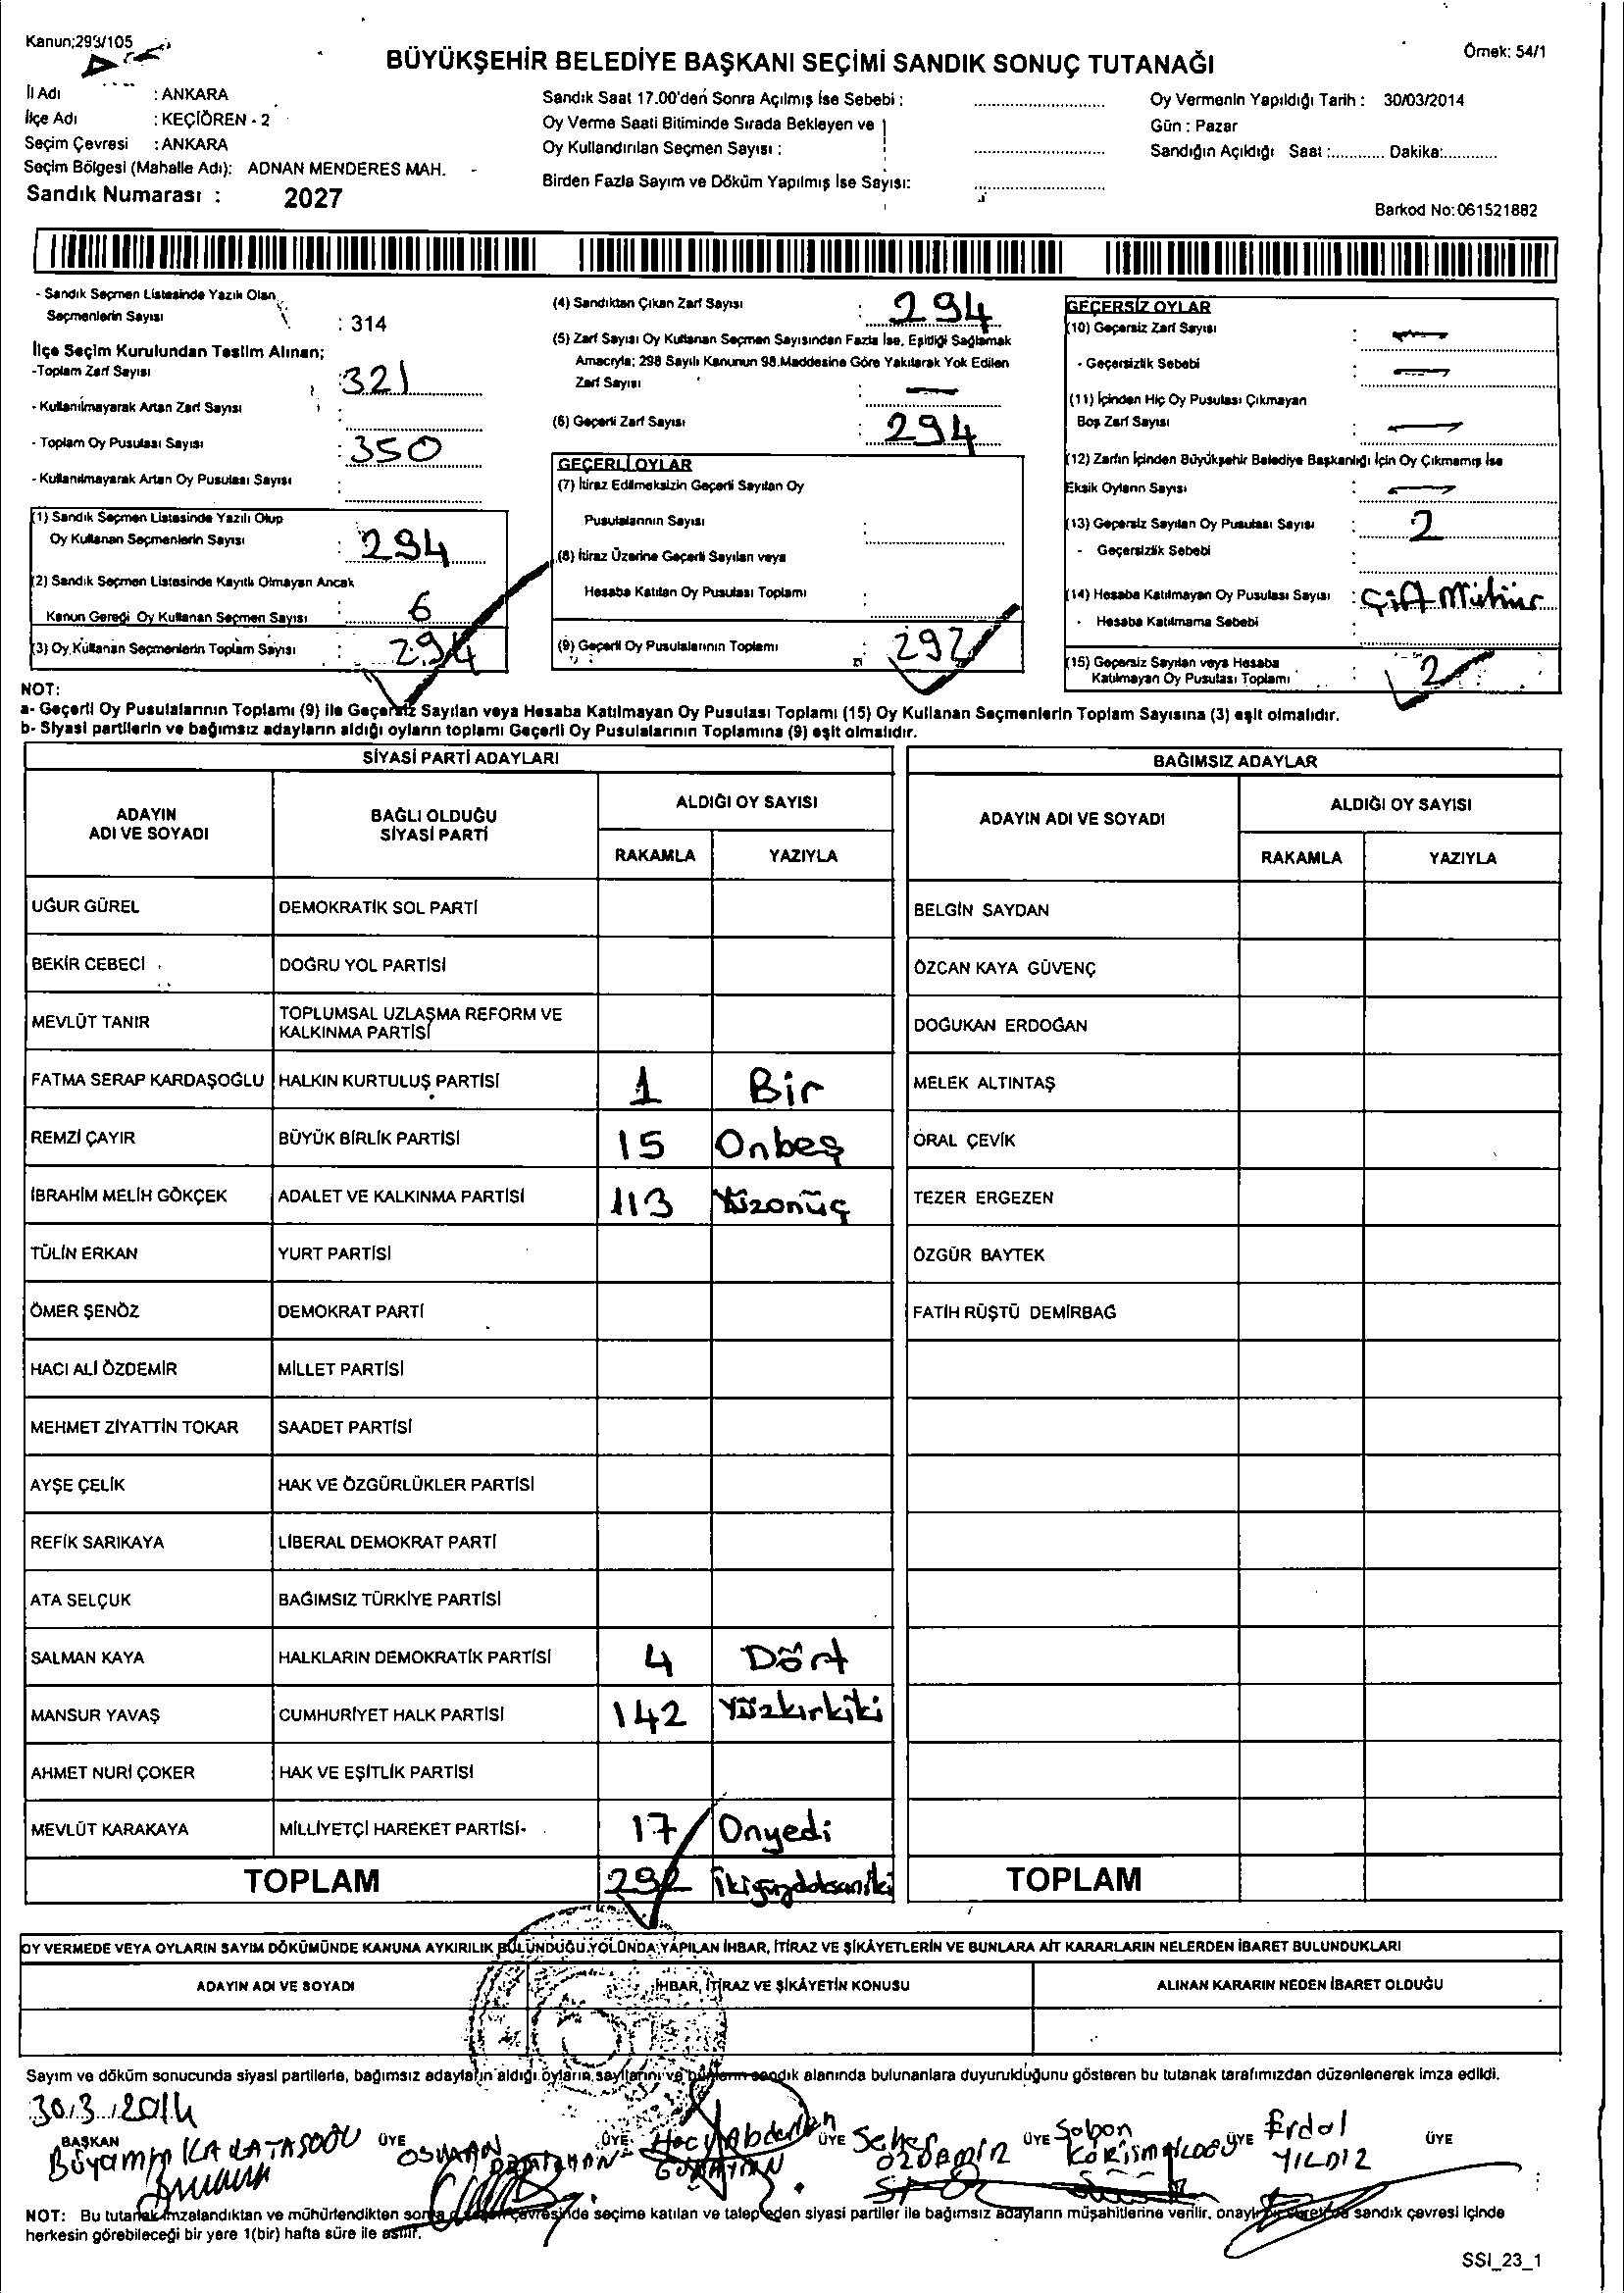 Kanun;298/105
BÜYÜKŞEHİR BELEDİYE BAŞKANI SEÇİMİ SANDIK SONUÇ TUTANAĞI
Örnek: 54/1
İl Adı : ANKARA
İlçe Adı : KEÇİÖREN - 2
Seçim Çevresi : ANKARA
Seçim Bölgesi (Mahalle Adı): ADNAN MENDERES MAH. -
Sandık Numarası : 2027
Sandık Saat 17.00'den Sonra Açılmış İse Sebebi :
Oy Verme Saati Bitiminde Sırada Bekleyen ve
Oy Kullandırılan Seçmen Sayısı :
Birden Fazla Sayım ve Döküm Yapılmış İse Sayısı:
Oy Vermenin Yapıldığı Tarih : 30/03/2014
Gün : Pazar
Sandığın Açıldığı Saat :............ Dakika:............
Barkod No:061521882
- Sandık Seçmen Listesinde Yazılı Olan
Seçmenlerin Sayısı : 314
İlçe Seçim Kurulundan Teslim Alınan;
-Toplam Zarf Sayısı : 321
- Kullanılmayarak Artan Zarf Sayısı :
- Toplam Oy Pusulası Sayısı : 350
- Kullanılmayarak Artan Oy Pusulası Sayısı :
(1) Sandık Seçmen Listesinde Yazılı Olup
Oy Kullanan Seçmenlerin Sayısı : 294
(2) Sandık Seçmen Listesinde Kayıtlı Olmayan Ancak
Kanun Gereği Oy Kullanan Seçmen Sayısı : 6
(3) Oy Kullanan Seçmenlerin Toplam Sayısı : 294
(4) Sandıktan Çıkan Zarf Sayısı : 294
(5) Zarf Sayısı Oy Kullanan Seçmen Sayısından Fazla İse, Eşitliği Sağlamak
Amacıyla; 298 Sayılı Kanunun 98.Maddesine Göre Yakılarak Yok Edilen
Zarf Sayısı : —
(6) Geçerli Zarf Sayısı : 294
GEÇERLİ OYLAR
(7) İtiraz Edilmeksizin Geçerli Sayılan Oy
Pusulalarının Sayısı :
(8) İtiraz Üzerine Geçerli Sayılan veya
Hesaba Katılan Oy Pusulası Toplamı :
(9) Geçerli Oy Pusulalarının Toplamı : 292
GEÇERSİZ OYLAR
(10) Geçersiz Zarf Sayısı : —
- Geçersizlik Sebebi : —
(11) İçinden Hiç Oy Pusulası Çıkmayan
Boş Zarf Sayısı : —
(12) Zarfın İçinden Büyükşehir Belediye Başkanlığı İçin Oy Çıkmamış İse
Eksik Oyların Sayısı : —
(13) Geçersiz Sayılan Oy Pusulası Sayısı : 2
- Geçersizlik Sebebi :
(14) Hesaba Katılmayan Oy Pusulası Sayısı : Çift Mühür
- Hesaba Katılmama Sebebi :
(15) Geçersiz Sayılan veya Hesaba
Katılmayan Oy Pusulası Toplamı : 2
NOT:
a- Geçerli Oy Pusulalarının Toplamı (9) ile Geçersiz Sayılan veya Hesaba Katılmayan Oy Pusulası Toplamı (15) Oy Kullanan Seçmenlerin Toplam Sayısına (3) eşit olmalıdır.
b- Siyasi partilerin ve bağımsız adayların aldığı oyların toplamı Geçerli Oy Pusulalarının Toplamına (9) eşit olmalıdır.
SİYASİ PARTİ ADAYLARI
BAĞIMSIZ ADAYLAR
ADAYIN ADI VE SOYADI
BAĞLI OLDUĞU SİYASİ PARTİ
ALDIĞI OY SAYISI
RAKAMLA YAZIYLA
ADAYIN ADI VE SOYADI
ALDIĞI OY SAYISI
RAKAMLA YAZIYLA
UĞUR GÜREL DEMOKRATİK SOL PARTİ BELGİN SAYDAN
BEKİR CEBECİ DOĞRU YOL PARTİSİ ÖZCAN KAYA GÜVENÇ
MEVLÜT TANIR TOPLUMSAL UZLAŞMA REFORM VE KALKINMA PARTİSİ DOĞUKAN ERDOĞAN
FATMA SERAP KARDAŞOĞLU HALKIN KURTULUŞ PARTİSİ 1 Bir MELEK ALTINTAŞ
REMZİ ÇAYIR BÜYÜK BİRLİK PARTİSİ 15 Onbeş ORAL ÇEVİK
İBRAHİM MELİH GÖKÇEK ADALET VE KALKINMA PARTİSİ 113 Yüzonüç TEZER ERGEZEN
TÜLİN ERKAN YURT PARTİSİ ÖZGÜR BAYTEK
ÖMER ŞENÖZ DEMOKRAT PARTİ FATİH RÜŞTÜ DEMİRBAĞ
HACI ALİ ÖZDEMİR MİLLET PARTİSİ
MEHMET ZİYATTİN TOKAR SAADET PARTİSİ
AYŞE ÇELİK HAK VE ÖZGÜRLÜKLER PARTİSİ
REFİK SARIKAYA LİBERAL DEMOKRAT PARTİ
ATA SELÇUK BAĞIMSIZ TÜRKİYE PARTİSİ
SALMAN KAYA HALKLARIN DEMOKRATİK PARTİSİ 4 Dört
MANSUR YAVAŞ CUMHURİYET HALK PARTİSİ 142 Yüzkırkiki
AHMET NURİ ÇOKER HAK VE EŞİTLİK PARTİSİ
MEVLÜT KARAKAYA MİLLİYETÇİ HAREKET PARTİSİ 17 Onyedi
TOPLAM 292 İkiyüzdoksaniki TOPLAM
OY VERMEDE VEYA OYLARIN SAYIM DÖKÜMÜNDE KANUNA AYKIRILIK BULUNDUĞU YOLUNDA YAPILAN İHBAR, İTİRAZ VE ŞİKÂYETLERİN VE BUNLARA AİT KARARLARIN NELERDEN İBARET BULUNDUKLARI
ADAYIN ADI VE SOYADI İHBAR, İTİRAZ VE ŞİKÂYETİN KONUSU ALINAN KARARIN NEDEN İBARET OLDUĞU
Sayım ve döküm sonucunda siyasi partilerle, bağımsız adayların aldığı oyların sayılarını ve bunların sandık alanında bulunanlara duyurulduğunu gösteren bu tutanak tarafımızdan düzenlenerek imza edildi.
30.3.2014
BAŞKAN ÜYE OSMAN ÜYE ÜYE Seher ÖZDEMİR ÜYE ÜYE Erdal YILDIZ ÜYE
NOT: Bu tutanak imzalandıktan ve mühürlendikten sonra çevresinde seçime katılan ve talep eden siyasi partiler ile bağımsız adayların müşahitlerine verilir, sandık çevresi içinde
herkesin görebileceği bir yere 1(bir) hafta süre ile asılır.
SSI_23_1